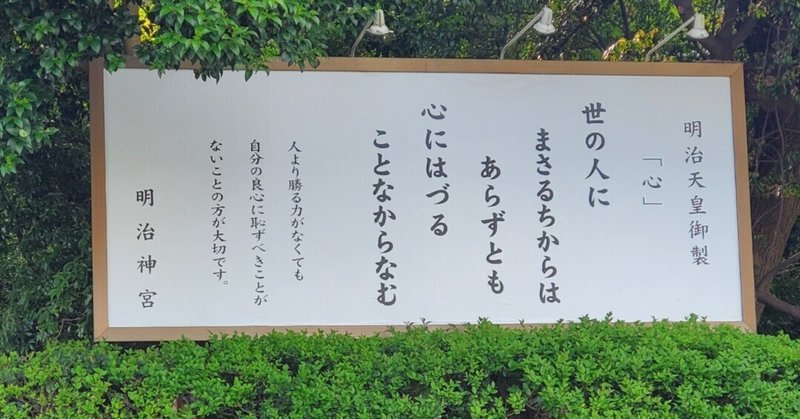 明治天皇御製
「心」
世の人に
まさるちからは
あらずとも
心にはづる
ことなからなむ
人より勝る力がなくても
自分の良心に恥ずべきことが
ないことの方が大切です。
明治神宮